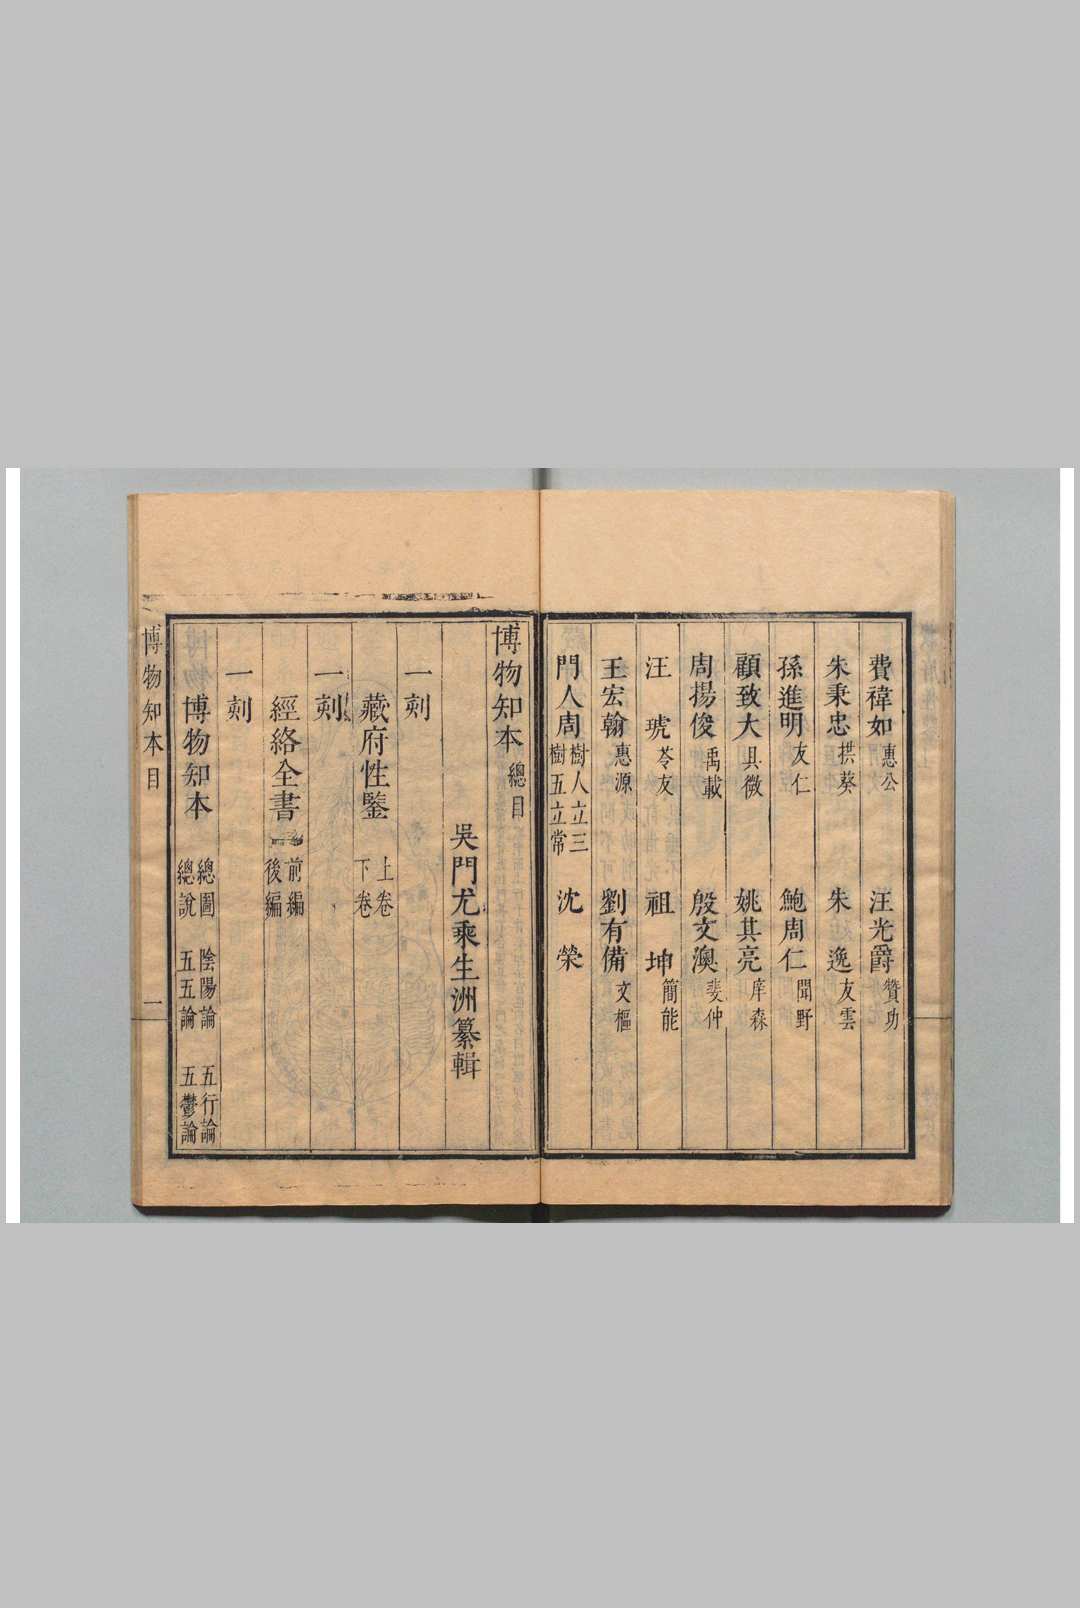 費禕如惠公　汪光爵贊功
朱秉忠拱葵　朱　逸友雲
孫進明友仁　鮑周仁聞野
顧致大具微　姚其亮庠森
周揚俊禹載　殷文澳斐仲
汪　琥苓友　祖　坤簡能
王宏翰惠源　劉有備文樞
門人周樹人立三樹五立常　沈　榮
博物知本總目
吳門尤乘生洲纂輯
一刻
藏府性鑒上卷下卷
一刻
經絡全書前編後編
一刻
博物知本總圖　陰陽論　五行論
總說　五五論　五鬱論
博物知本目　一